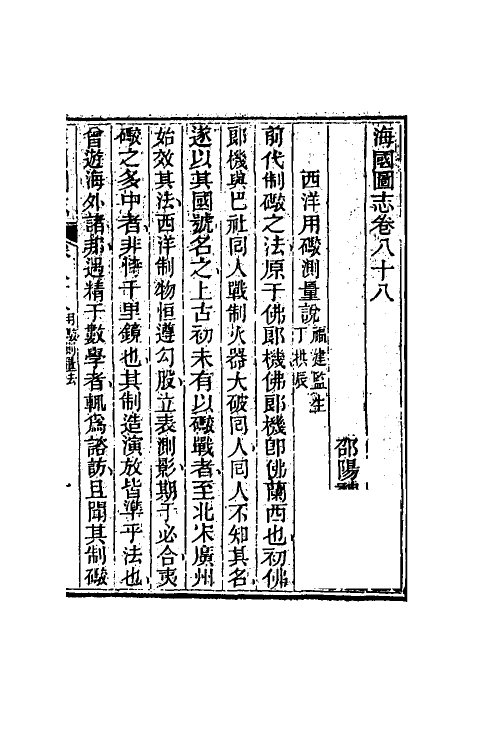 海國圖志卷八十八
邵陽
西洋用礮測量說福建監生
丁拱辰
前代制礮之法原于佛郎機佛郎機卽佛蘭西也初佛
郎機與巴社同人戰制火器大破同人同人不知其名
遂以其國號名之上古初未有以礮戰者至北宋廣州
始效其法西洋制物恒遵勾股立表測影期于必合夷
礮之多中者非恃千里鏡也其制造演放皆準乎法也
曾遊海外諸邦遇精于數學者輒爲諮訪且聞其制礮